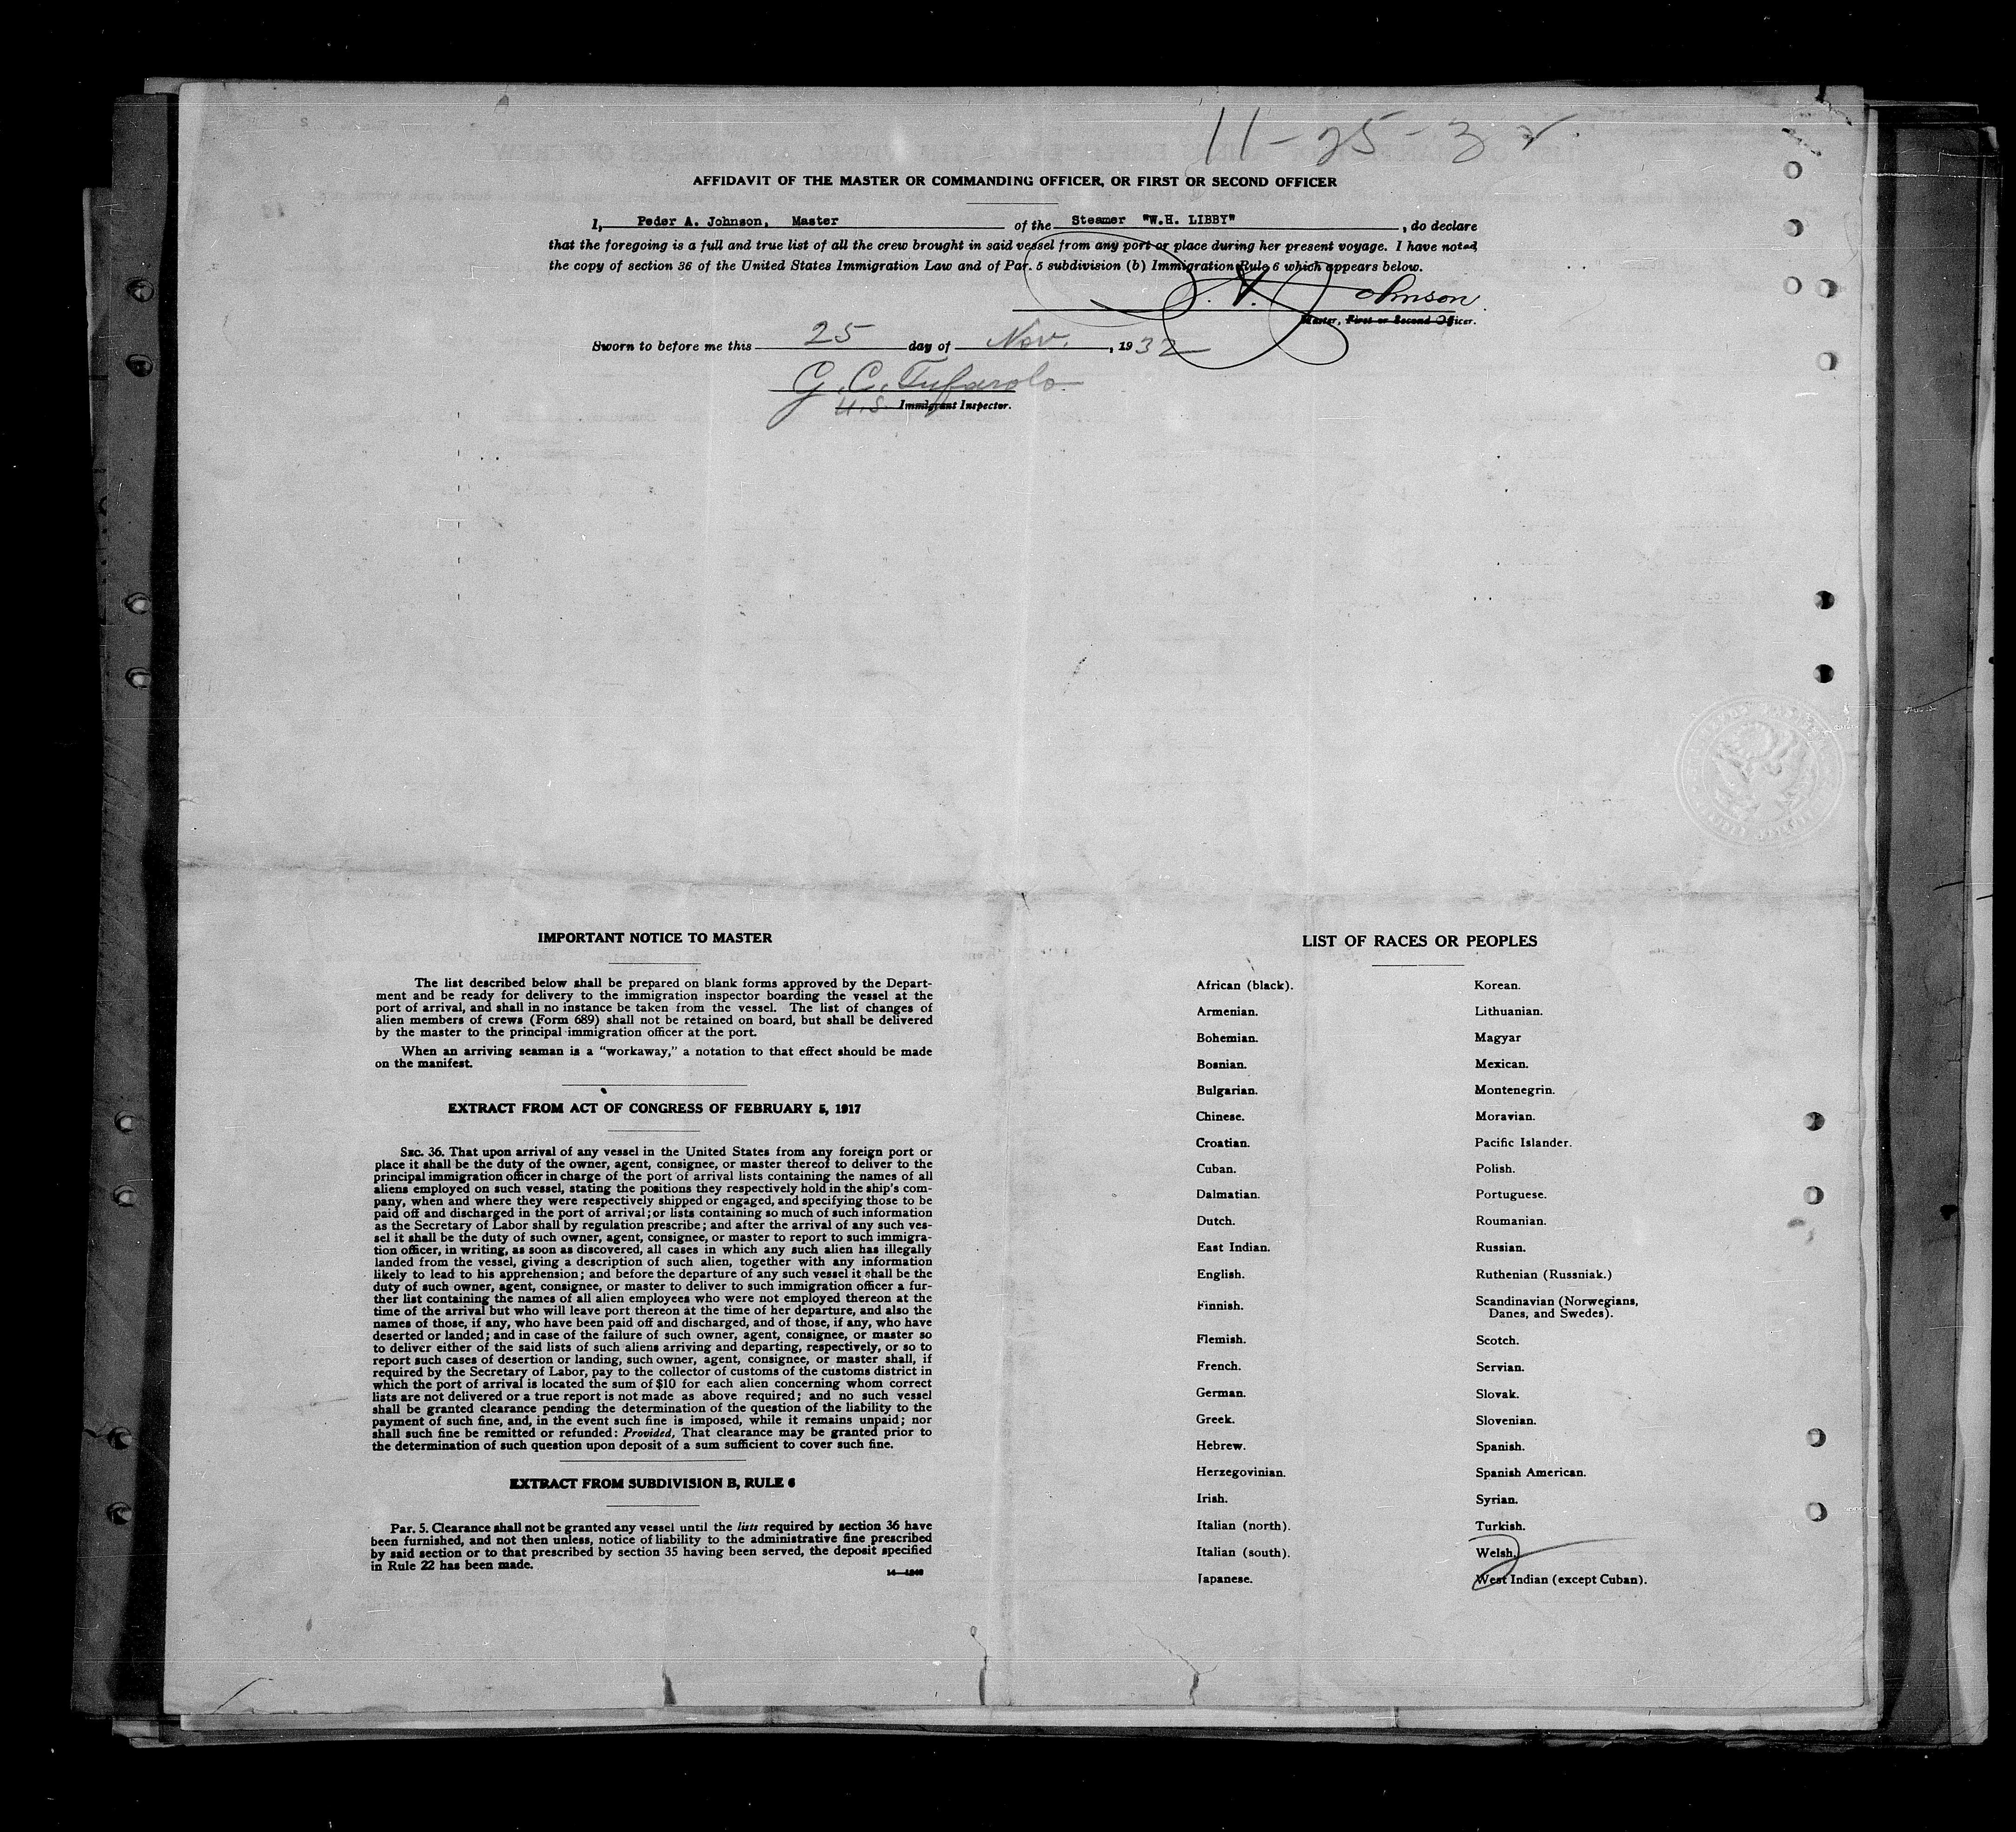 11-25-32
AFFIDAVIT OF THE MASTER OR COMMANDING OFFICER, OR FIRST OR SECOND OFFICER
I, Peder A. Johnson, Master of the Steamer "W.H. LIBBY", do declare
that the foregoing is a full and true list of all the crew brought in said vessel from any port or place during her present voyage. I have noted
the copy of section 36 of the United States Immigration Law and of Par. 5 subdivision (b) Immigration Rule 6 which appears below.
P. A. Johnson
Master, First or Second Officer.
Sworn to before me this 25 day of Nov., 1932
G. C. Tufarolo
U.S. Immigrant Inspector.
IMPORTANT NOTICE TO MASTER
The list described below shall be prepared on blank forms approved by the Depart-
ment and be ready for delivery to the immigration inspector boarding the vessel at the
port of arrival, and shall in no instance be taken from the vessel. The list of changes of
alien members of crews (Form 689) shall not be retained on board, but shall be delivered
by the master to the principal immigration officer at the port.
When an arriving seaman is a "workaway," a notation to that effect should be made
on the manifest.
EXTRACT FROM ACT OF CONGRESS OF FEBRUARY 5, 1917
SEC. 36. That upon arrival of any vessel in the United States from any foreign port or
place it shall be the duty of the owner, agent, consignee, or master thereof to deliver to the
principal immigration officer in charge of the port of arrival lists containing the names of all
aliens employed on such vessel, stating the positions they respectively hold in the ship's com-
pany, when and where they were respectively shipped or engaged, and specifying those to be
paid off and discharged in the port of arrival; or lists containing so much of such information
as the Secretary of Labor shall by regulation prescribe; and after the arrival of any such ves-
sel it shall be the duty of such owner, agent, consignee, or master to report to such immigra-
tion officer, in writing, as soon as discovered, all cases in which any such alien has illegally
landed from the vessel, giving a description of such alien, together with any information
likely to lead to his apprehension; and before the departure of any such vessel it shall be the
duty of such owner, agent, consignee, or master to deliver to such immigration officer a fur-
ther list containing the names of all alien employees who were not employed thereon at the
time of the arrival but who will leave port thereon at the time of her departure, and also the
names of those, if any, who have been paid off and discharged, and of those, if any, who have
deserted or landed; and in case of the failure of such owner, agent, consignee, or master so
to deliver either of the said lists of such aliens arriving and departing, respectively, or so to
report such cases of desertion or landing, such owner, agent, consignee, or master shall, if
required by the Secretary of Labor, pay to the collector of customs of the customs district in
which the port of arrival is located the sum of $10 for each alien concerning whom correct
lists are not delivered or a true report is not made as above required; and no such vessel
shall be granted clearance pending the determination of the question of the liability to the
payment of such fine, and, in the event such fine is imposed, while it remains unpaid; nor
shall such fine be remitted or refunded: Provided, That clearance may be granted prior to
the determination of such question upon deposit of a sum sufficient to cover such fine.
EXTRACT FROM SUBDIVISION B, RULE 6
Par. 5. Clearance shall not be granted any vessel until the lists required by section 36 have
been furnished, and not then unless, notice of liability to the administrative fine prescribed
by said section or to that prescribed by section 35 having been served, the deposit specified
in Rule 22 has been made.
LIST OF RACES OR PEOPLES
African (black).
Armenian.
Bohemian.
Bosnian.
Bulgarian.
Chinese.
Croatian.
Cuban.
Dalmatian.
Dutch.
East Indian.
English.
Finnish.
Flemish.
French.
German.
Greek.
Hebrew.
Herzegovinian.
Irish.
Italian (north).
Italian (south).
Japanese.
Korean.
Lithuanian.
Magyar
Mexican.
Montenegrin.
Moravian.
Pacific Islander.
Polish.
Portuguese.
Roumanian.
Russian.
Ruthenian (Russniak.)
Scandinavian (Norwegians,
Danes, and Swedes).
Scotch.
Servian.
Slovak.
Slovenian.
Spanish.
Spanish American.
Syrian.
Turkish.
Welsh.
West Indian (except Cuban).